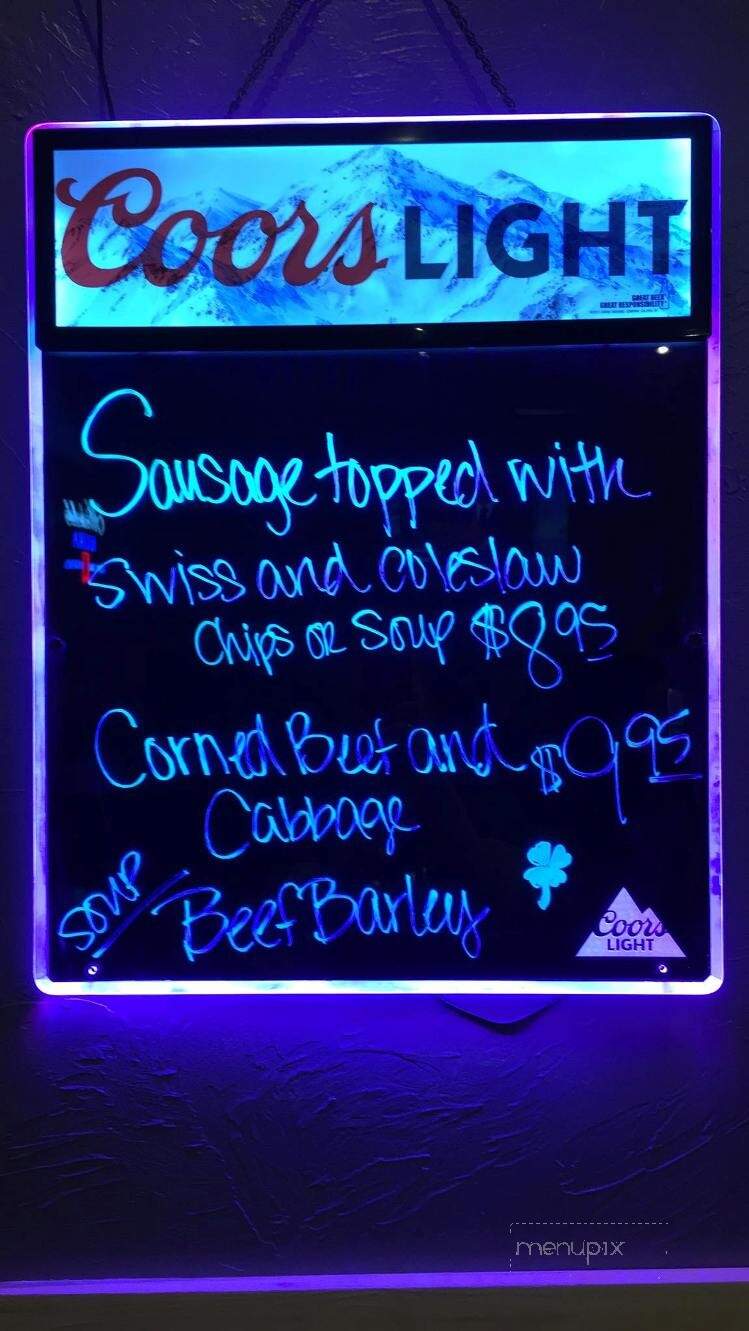 Coors LIGHT
GREAT BEER
GREAT RESPONSIBILITY
Sausage topped with
swiss and coleslaw
chips or Soup $8 95
Corned Beef and $9 95
Cabbage
soup/ Beef Barley
Coors
LIGHT
menupix